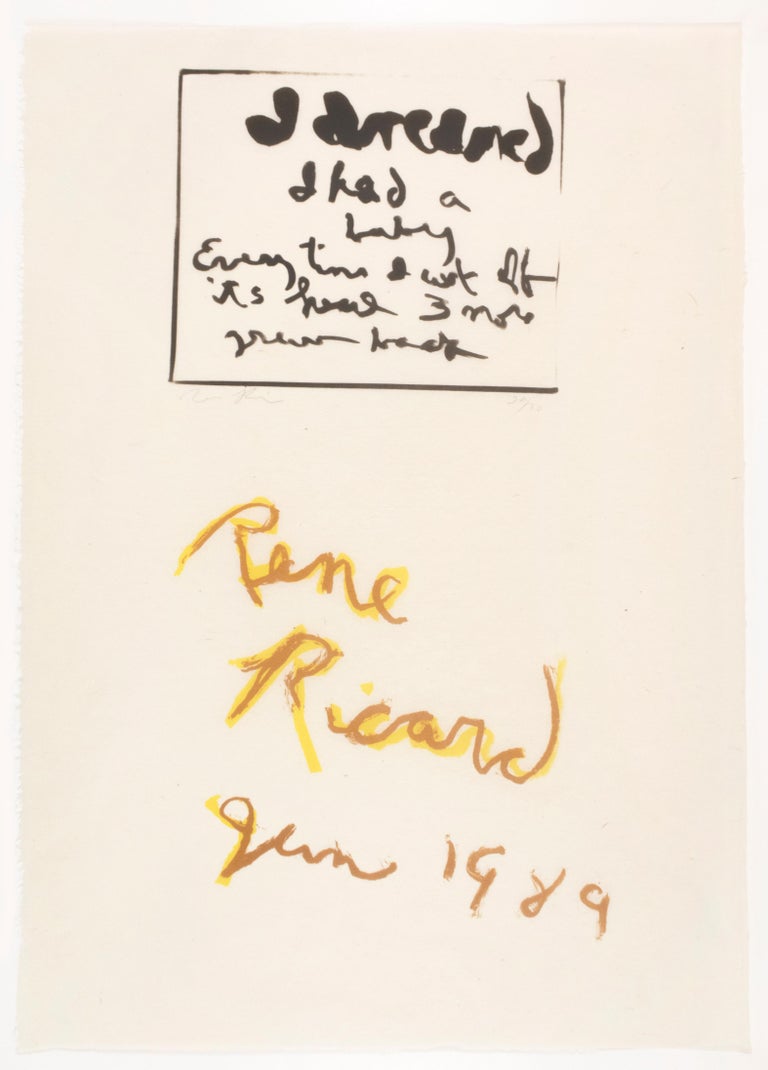 I dreamed
I had a
baby
Every time I cut off
its head 3 more
grew back
Rene
Ricard
Jan 1989